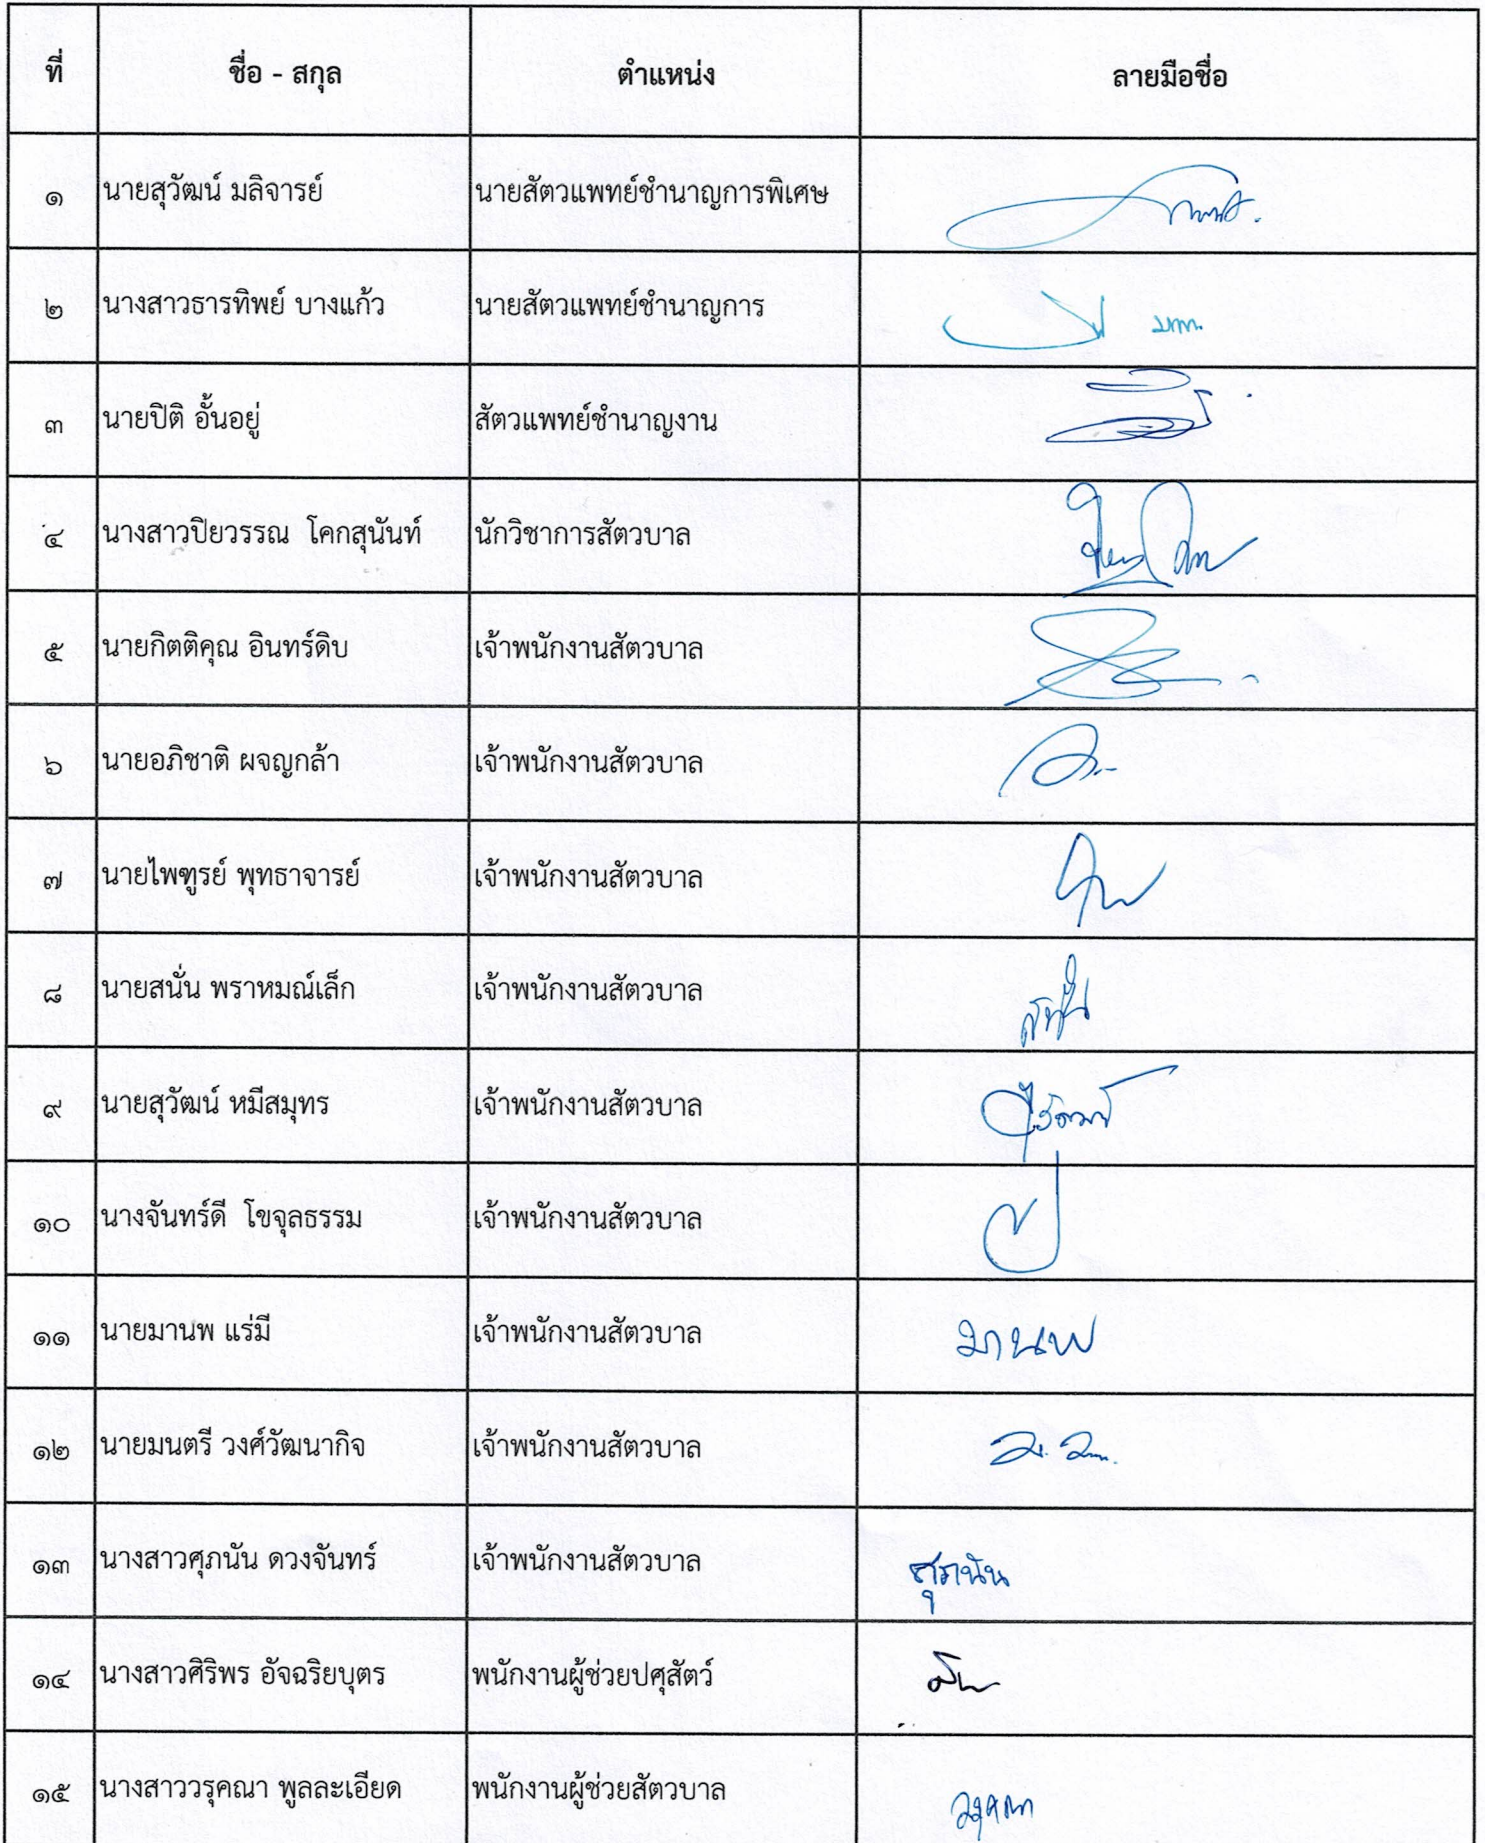 ที่ ชื่อ - สกุล ตำแหน่ง ลายมือชื่อ
๑ นายสุวัฒน์ มลิจารย์ นายสัตวแพทย์ชำนาญการพิเศษ
๒ นางสาวธารทิพย์ บางแก้ว นายสัตวแพทย์ชำนาญการ
๓ นายปิติ อั้นอยู่ สัตวแพทย์ชำนาญงาน
๔ นางสาวปิยวรรณ โคกสุนันท์ นักวิชาการสัตวบาล
๕ นายกิตติคุณ อินทร์ดิบ เจ้าพนักงานสัตวบาล
๖ นายอภิชาติ ผจญกล้า เจ้าพนักงานสัตวบาล
๗ นายไพฑูรย์ พุทธาจารย์ เจ้าพนักงานสัตวบาล
๘ นายสนั่น พราหมณ์เล็ก เจ้าพนักงานสัตวบาล
๙ นายสุวัฒน์ หมีสมุทร เจ้าพนักงานสัตวบาล
๑๐ นางจันทร์ดี โขจุลธรรม เจ้าพนักงานสัตวบาล
๑๑ นายมานพ แร่มี เจ้าพนักงานสัตวบาล มานพ
๑๒ นายมนตรี วงศ์วัฒนากิจ เจ้าพนักงานสัตวบาล
๑๓ นางสาวศุภนัน ดวงจันทร์ เจ้าพนักงานสัตวบาล ศุภนัน
๑๔ นางสาวศิริพร อัจฉริยบุตร พนักงานผู้ช่วยปศุสัตว์
๑๕ นางสาววรุคณา พูลละเอียด พนักงานผู้ช่วยสัตวบาล วรุคณา